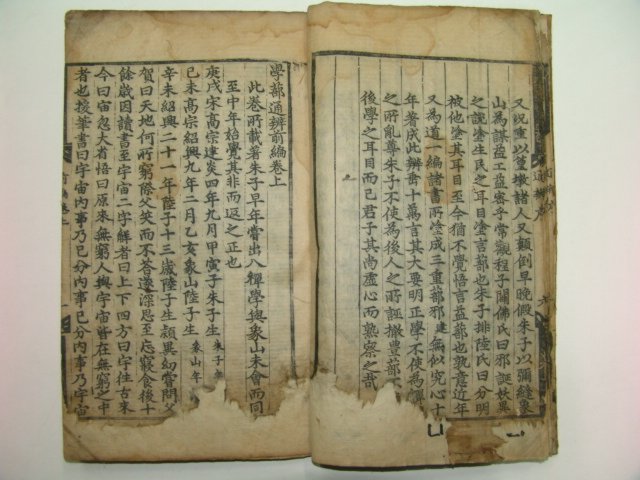 又況重以篁墩諸人又顛倒早晚假朱子以彌縫象
山為謀益工益密乎常觀程子闢佛氏曰邪誕妖異
之說塗生民之耳目塗言蔀也朱子排陸氏曰分明
被他塗其耳目至今猶不覺悟言益蔀也孰意近年
又為道一編諸書所塗成三重蔀邪建無似究心十
年著成此辨垂十萬言其大要明正學不使為禪
之所亂尊朱子不使為後人之所誣撤豐蔀不
後學之耳目而已君子其尚虛心而熟察之哉
學蔀通辨前編卷上
此卷所載著朱子早年嘗出入禪學與象山未會而同
至中年始覺其非而返之正也
庚戌宋高宗建炎四年九月甲寅子朱子生 朱子年
己未高宗紹興九年二月乙亥象山陸子生 象山年
辛未紹興二十一年陸子十三歲陸子生穎異幼嘗問父
賀曰天地何所窮際父笑而不答遂深思至忘寢食後十
餘歲因讀書至宇宙二字解者曰上下四方曰宇往古來
今曰宙忽大省悟曰原來無窮人與宇宙皆在無窮之中
者也授筆書曰宇宙內事乃己分內事己分內事乃宇宙